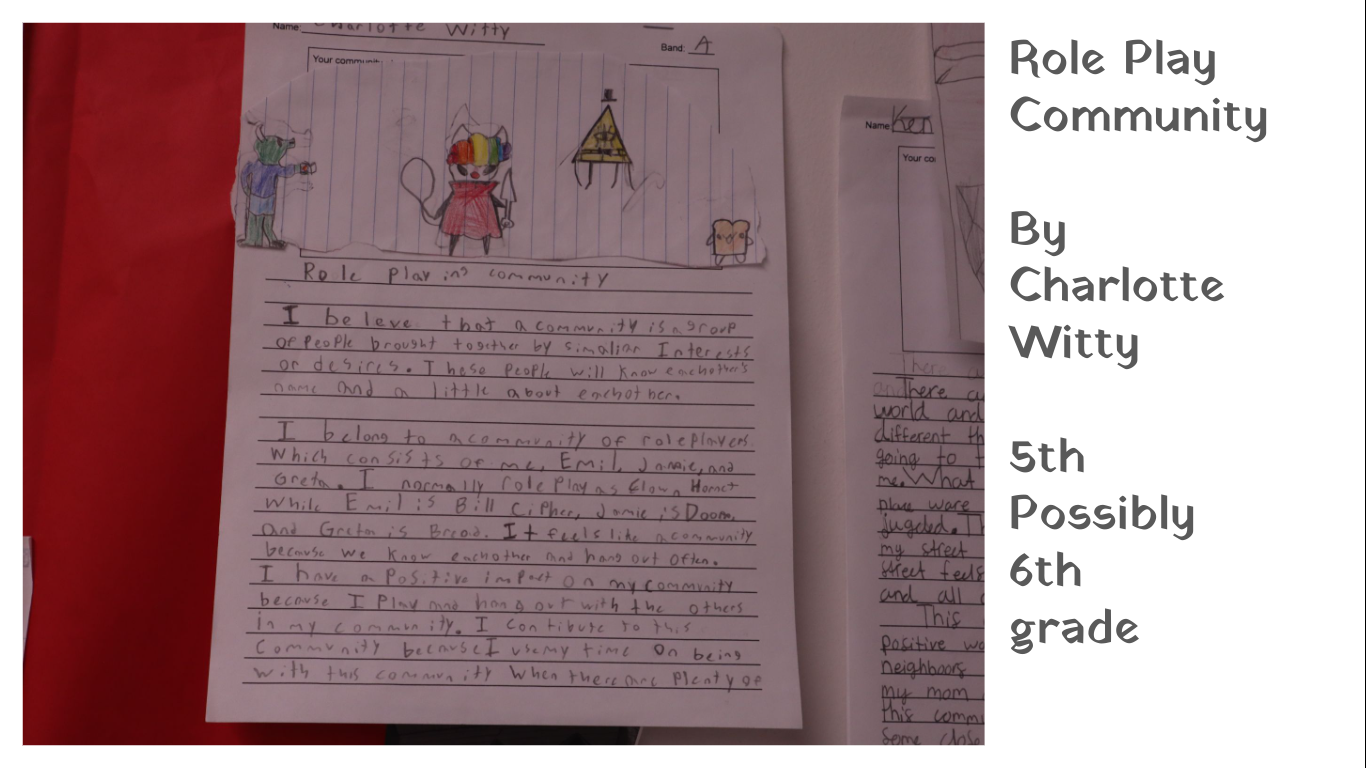 Name: Charlotte Witty
Band: A
Your community
Role playing community
I beleve that a community is a group
of people brought together by simaliar Interests
or desires. These people will know eachother's
name and a little about eachother.
I belong to a community of roleplayers.
Which consists of me, Emil, Jamie, and
Greta. I normally role play as Clown Hornet
While Emil is Bill Cipher, Jamie is Doom,
and Greta is Bread. It feels like a community
because we know eachother and hang out often.
I have a positive impact on my community
because I Play and hang out with the others
in my community. I contibute to this
Community because I use my time On being
with this community When there are plenty of
Name: Ken
Your co
There a
and There a
world and
different th
going to t
me. What
place ware
jugded. Th
my street
street feels
and all
This
positive wo
neighboors
my mom
this commu
some close
Role Play
Community
By
Charlotte
Witty
5th
Possibly
6th
grade